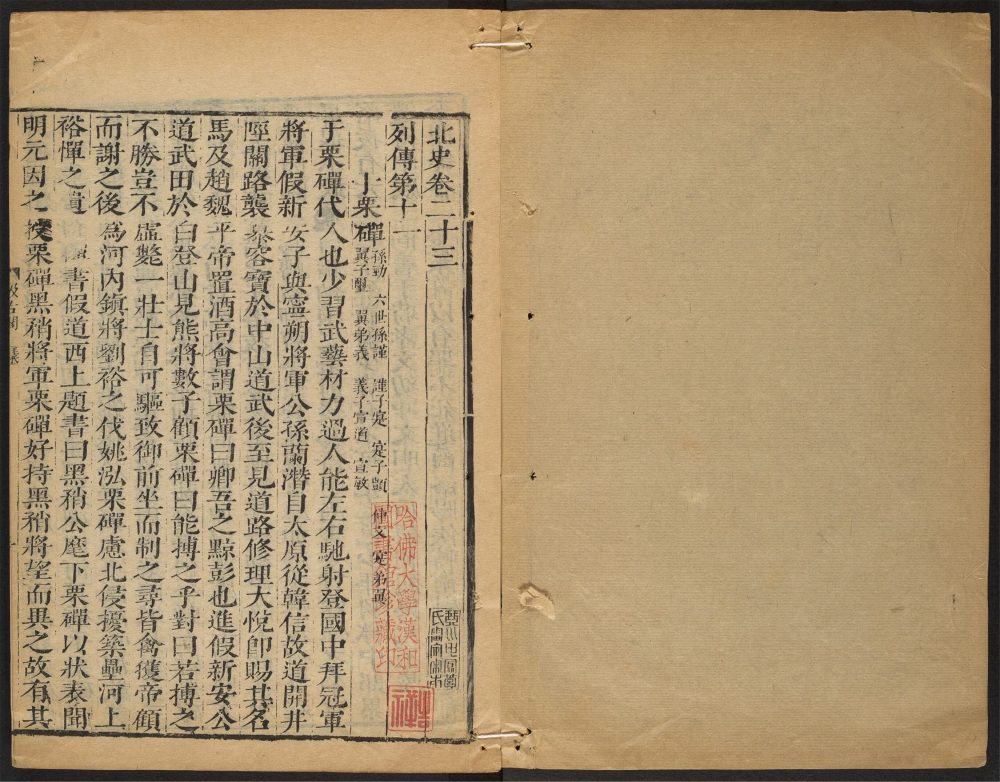 北史卷二十三
列傳第十一
于栗磾 孫勁 六世孫謹 謹子寔 寔子顗 仲文 寔弟翼
翼子璽 翼弟義 義子宣道 宣敏
于栗磾代人也少習武藝材力過人能左右馳射登國中拜冠軍
將軍假新安子與寧朔將軍公孫蘭潛自太原從韓信故道開井
陘關路襲慕容寶於中山道武後至見道路修理大悅卽賜其名
馬及趙魏平帝置酒高會謂栗磾曰卿吾之黥彭也進假新安公
道武田於白登山見熊將數子顧栗磾曰能搏之乎對曰若搏之
不勝豈不虛斃一壯士自可驅致御前坐而制之尋皆禽獲帝顧
而謝之後爲河內鎮將劉裕之伐姚泓栗磾慮北侵擾築壘河上
裕憚之遺 書假道西上題書曰黑矟公麾下栗磾以狀表聞
明元因之授栗磾黑矟將軍栗磾好持黑矟將望而異之故有其
哈佛大學漢和
圖書館珍藏印